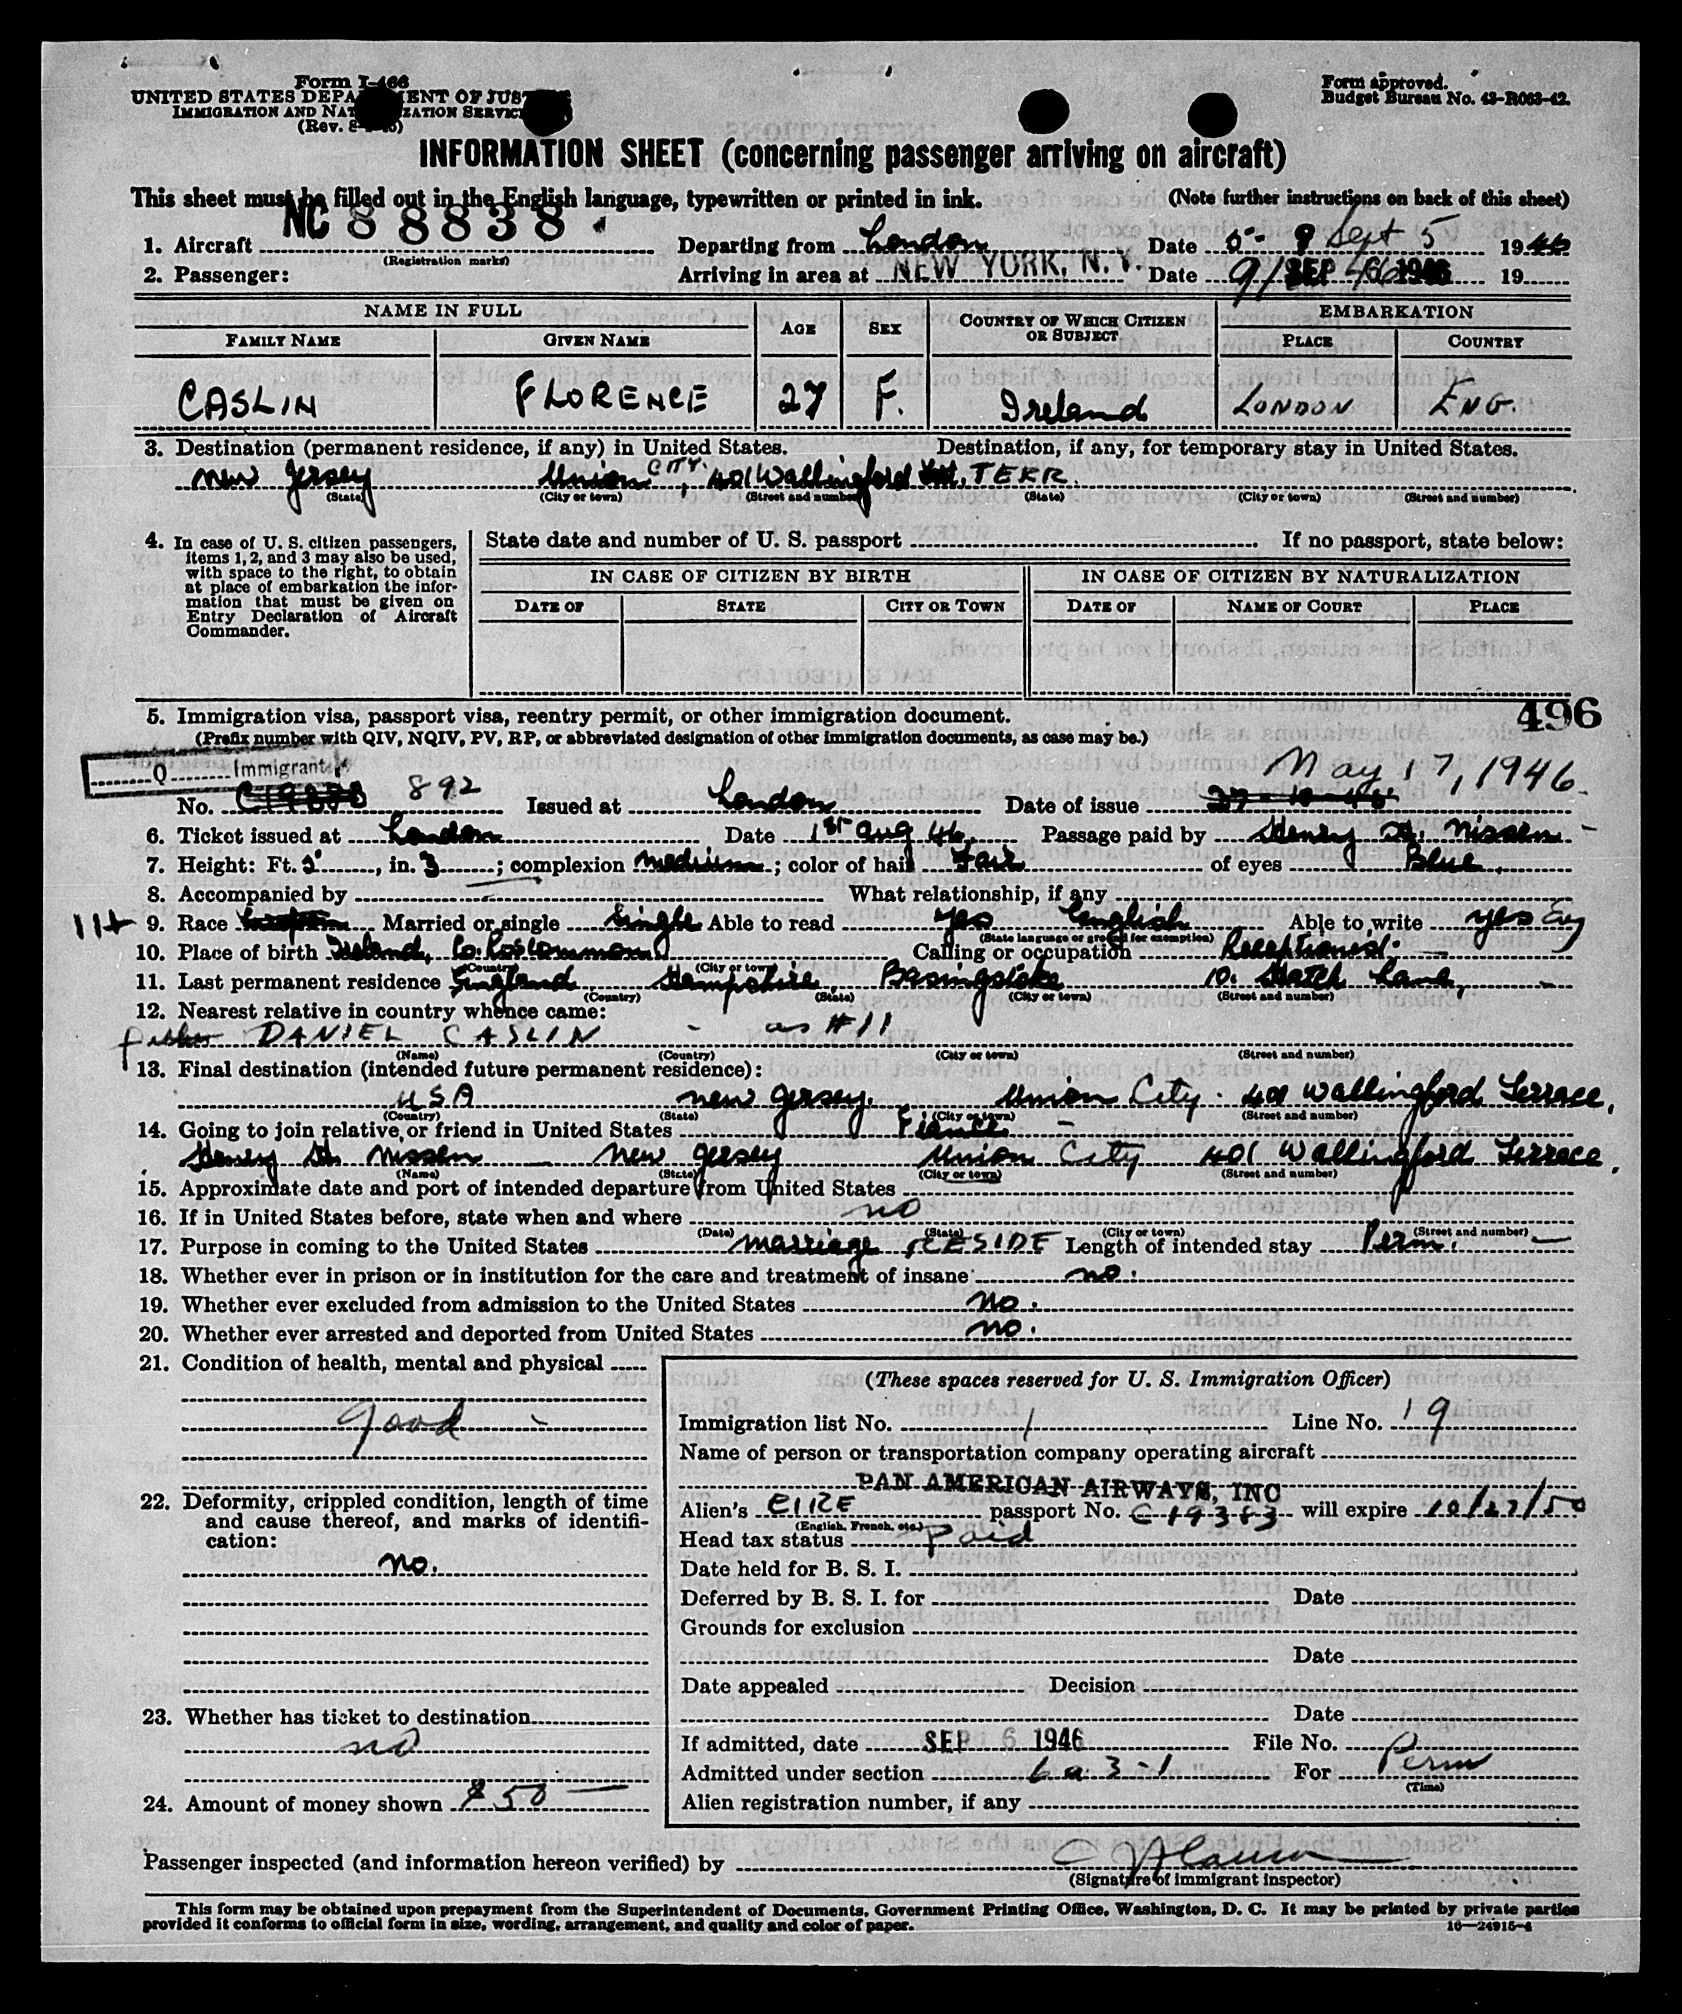 Form I-466
UNITED STATES DEPARTMENT OF JUSTICE
IMMIGRATION AND NATURALIZATION SERVICE
(Rev.
Form approved.
Budget Bureau No. 43-R063-42.
INFORMATION SHEET (concerning passenger arriving on aircraft)
This sheet must be filled out in the English language, typewritten or printed in ink. (Note further instructions on back of this sheet)
1. Aircraft NC 88838 Departing from London Date Sept 5 1946
(Registration marks)
2. Passenger: Arriving in area at NEW YORK, N.Y. Date SEP 6 1946 19
NAME IN FULL AGE SEX COUNTRY OF WHICH CITIZEN OR SUBJECT EMBARKATION
FAMILY NAME GIVEN NAME PLACE COUNTRY
CASLIN FLORENCE 27 F. Ireland LONDON ENG.
3. Destination (permanent residence, if any) in United States. Destination, if any, for temporary stay in United States.
New Jersey Union CITY, 401 Wallingford TERR.
(State) (City or town) (Street and number) (State) (City or town) (Street and number)
4. In case of U. S. citizen passengers, items 1, 2, and 3 may also be used, with space to the right, to obtain at place of embarkation the information that must be given on Entry Declaration of Aircraft Commander.
State date and number of U. S. passport If no passport, state below:
IN CASE OF CITIZEN BY BIRTH IN CASE OF CITIZEN BY NATURALIZATION
DATE OF STATE CITY OR TOWN DATE OF NAME OF COURT PLACE
496
5. Immigration visa, passport visa, reentry permit, or other immigration document.
(Prefix number with QIV, NQIV, PV, RP, or abbreviated designation of other immigration documents, as case may be.)
Q Immigrant
No. 892 Issued at London Date of issue May 17, 1946.
6. Ticket issued at London Date 1st Aug 46. Passage paid by Henry H. Nissen
7. Height: Ft. 5, in. 3; complexion Medium; color of hair Fair of eyes Blue.
8. Accompanied by What relationship, if any
9. Race Married or single Single Able to read yes English Able to write yes Eng
(State language or ground for exemption)
10. Place of birth Ireland, Co. Roscommon Calling or occupation Receptionist.
(Country) (City or town)
11. Last permanent residence England Hampshire Basingstoke 10. Hatch Lane,
(Country) (State) (City or town) (Street and number)
12. Nearest relative in country whence came:
father DANIEL CASLIN - as #11
(Name) (Country) (City or town) (Street and number)
13. Final destination (intended future permanent residence):
USA New Jersey. Union City. 401 Wallingford Terrace.
(Country) (State) (City or town) (Street and number)
14. Going to join relative or friend in United States Fiance
Henry H. Nissen New Jersey Union City 401 Wallingford Terrace.
(Name) (State) (City or town) (Street and number)
15. Approximate date and port of intended departure from United States
16. If in United States before, state when and where no
(Date) (State) (City or town) (Street and number)
17. Purpose in coming to the United States Marriage, RESIDE Length of intended stay Perm.
18. Whether ever in prison or in institution for the care and treatment of insane no.
19. Whether ever excluded from admission to the United States no.
20. Whether ever arrested and deported from United States no.
21. Condition of health, mental and physical
good
22. Deformity, crippled condition, length of time and cause thereof, and marks of identification:
no.
23. Whether has ticket to destination
no
24. Amount of money shown $50
(These spaces reserved for U. S. Immigration Officer)
Immigration list No. 1 Line No. 19
Name of person or transportation company operating aircraft
PAN AMERICAN AIRWAYS, INC
Alien's EIRE passport No. C 19383 will expire 10/27/50
(English, French, etc.)
Head tax status paid
Date held for B. S. I.
Deferred by B. S. I. for Date
Grounds for exclusion
Date
Date appealed Decision
Date
If admitted, date SEP 6 1946 File No.
Admitted under section 6 a 3-1 For Perm
(Time)
Alien registration number, if any
Passenger inspected (and information hereon verified) by
(Signature of immigrant inspector)
This form may be obtained upon prepayment from the Superintendent of Documents, Government Printing Office, Washington, D. C. It may be printed by private parties
provided it conforms to official form in size, wording, arrangement, and quality and color of paper. 16—24915-4